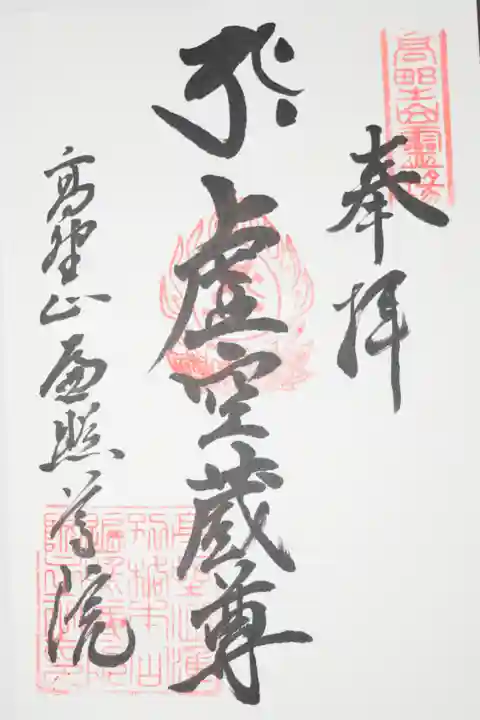 高野山霊場
奉拝
𑖝𑖿𑖨𑖯𑖾
虚空蔵尊
高野山遍照尊院